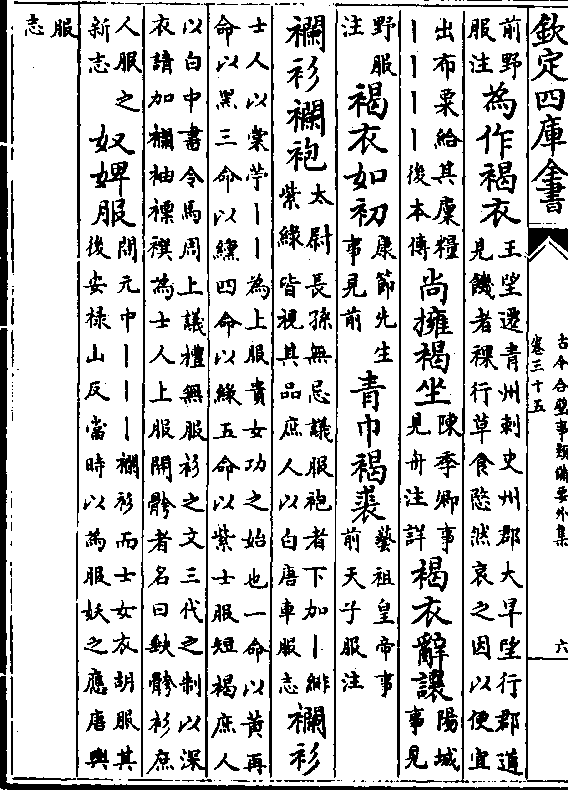 欽定四庫全書
古今合璧事類備要外集
卷三十五
六
前野
服注
為作褐衣
王望遷青州刺史州郡大旱望行郡道
見饑者裸行草食愍然哀之因以便宜
出布粟給其廩糧
丨丨丨丨後本傳
尚擁褐坐
陳季卿事
見舟注詳
褐衣辭讓
陽城
事見
野服
注
褐衣如初
康節先生
事見前
青巾褐裘
藝祖皇帝事
前天子服注
襴衫襴袍
太尉長孫無忌議服袍者下加丨緋
紫綠皆視其品庶人以白唐車服志
襴衫
士人以棠苧丨丨為上服貴女功之始也一命以黃再
命以黑三命以纁四命以綠五命以紫士服短褐庶人
以白中書令馬周上議禮無服衫之文三代之制以深
衣請加襴袖褾襈為士人上服開骻者名曰缺骻衫庶
人服之
新志
奴婢服
開元中丨丨丨襴衫而士女衣胡服其
後安祿山反當時以為服妖之應唐輿
服
志